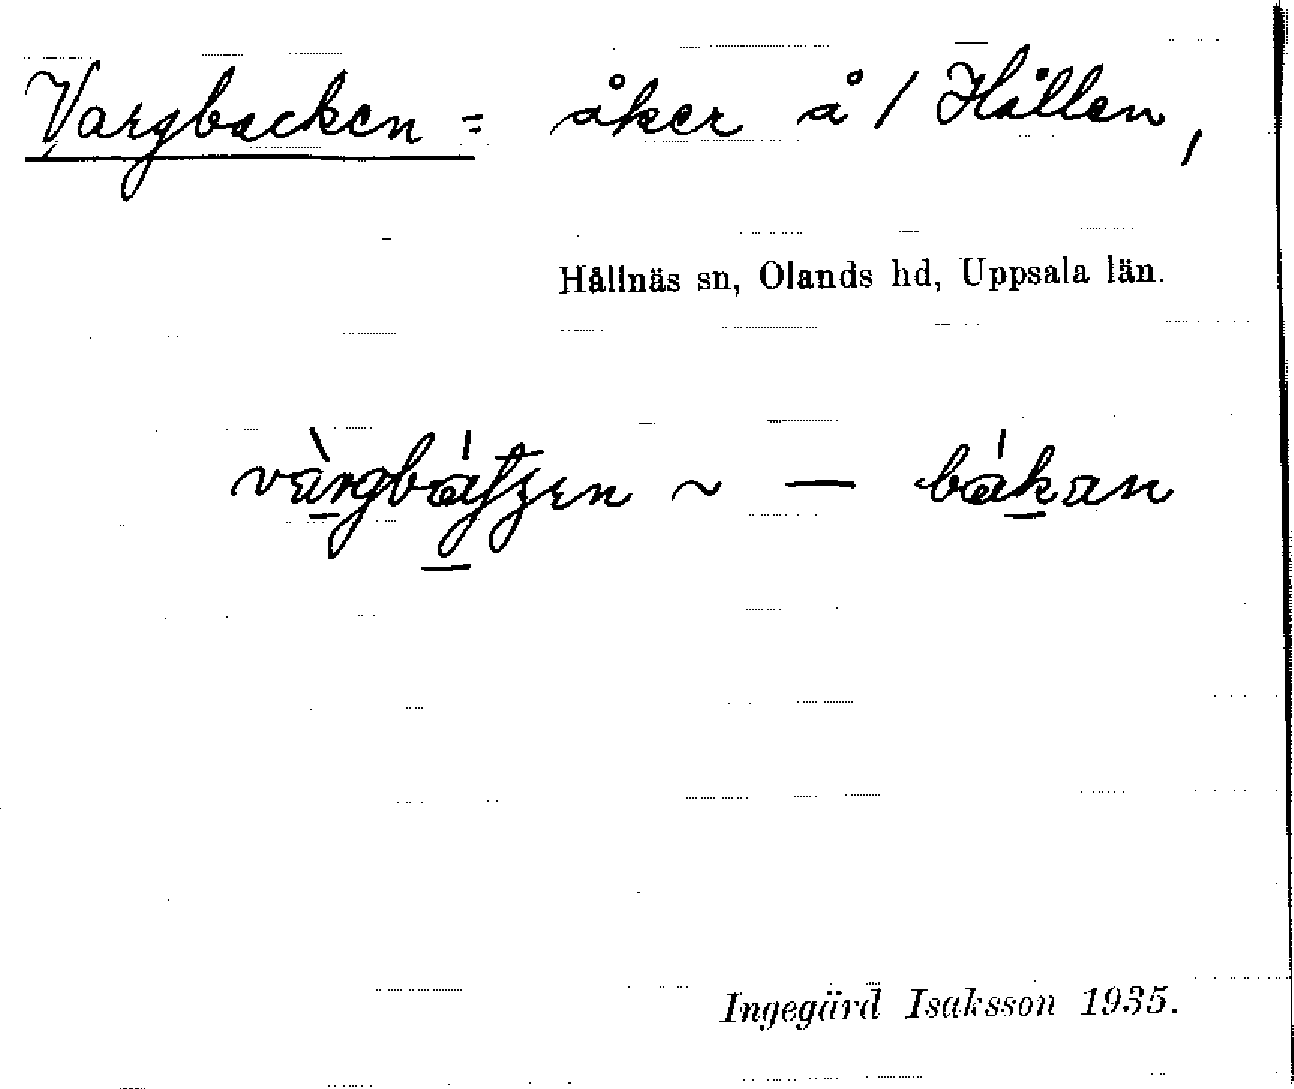 Vargbacken = åker å / Hållen,
Hållnäs sn, Olands hd, Uppsala län.
~ — bákan
Ingegärd Isaksson 1935.